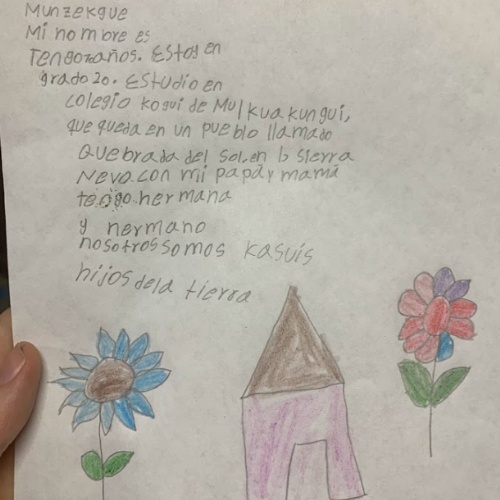 Munzekgue
Mi nombre es
Tengo años. Estoy en
grado 2o. Estudio en
colegio kogui de Mulkuakungui,
que queda en un pueblo llamado
Quebrada del sol, en la sierra
Neva. con mi papá y mamá
tengo hermana
y hermano
nosotros somos kasuis
hijos de la tierra